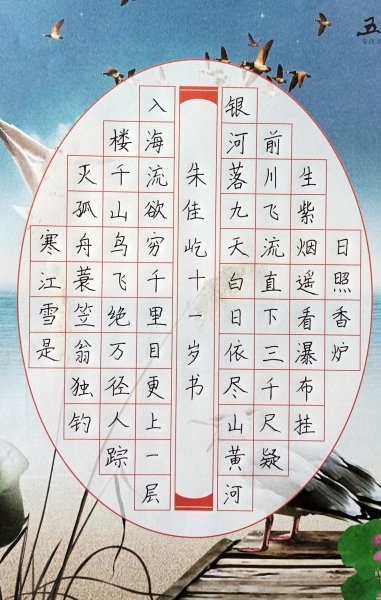 五
日照香炉
生紫烟遥看瀑布挂
前川飞流直下三千尺疑
银河落九天白日依尽山黄河
朱佳屹十一岁书
入海流欲穷千里目更上一层
楼千山鸟飞绝万径人踪
灭孤舟蓑笠翁独钓
寒江雪是